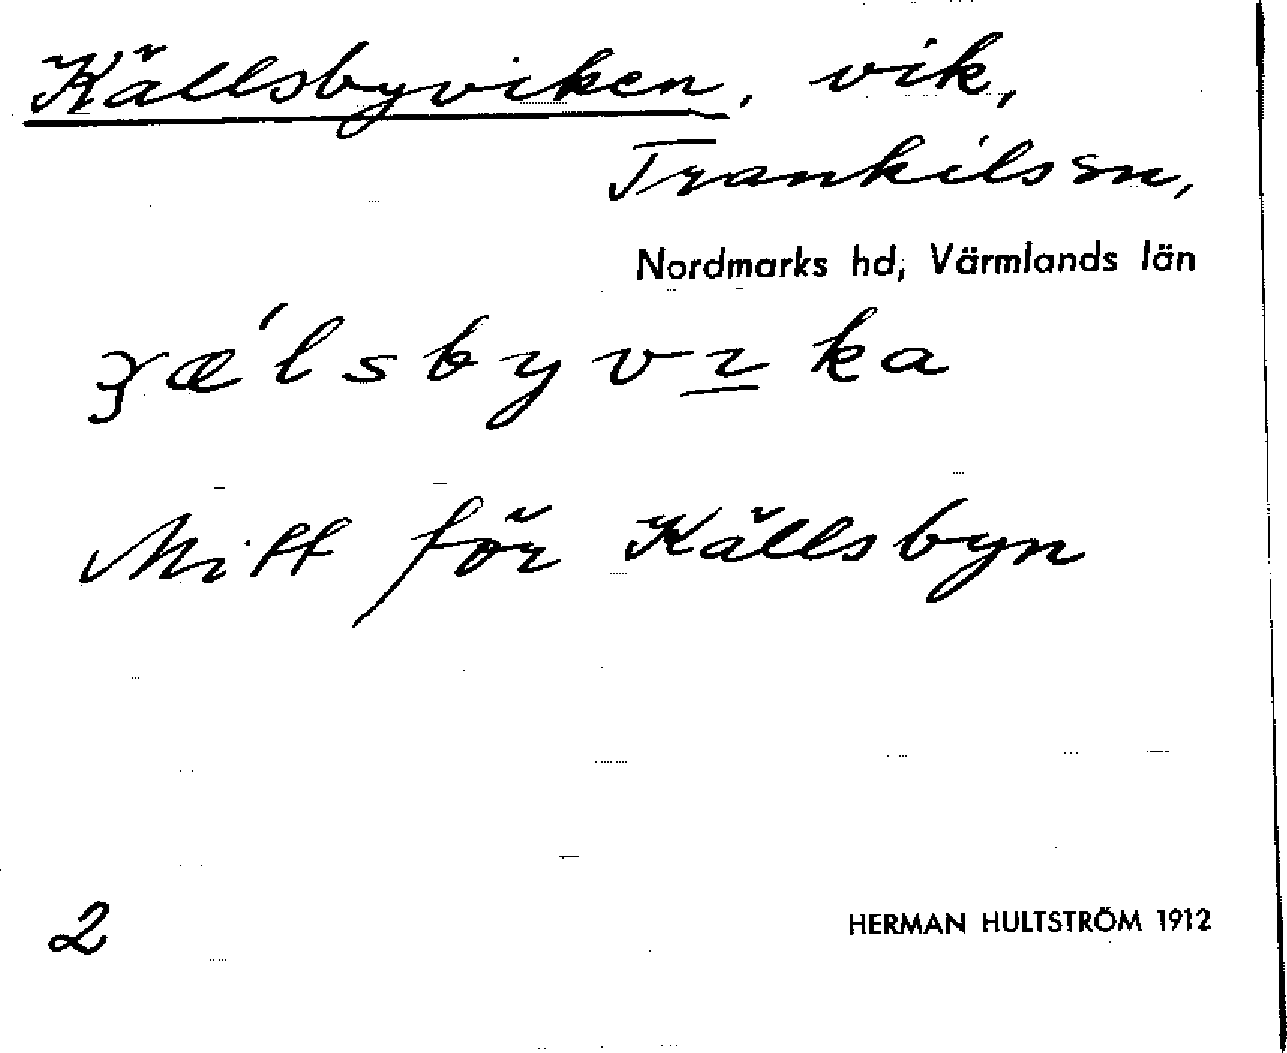 Källsbyviken, vik,
Trankils sn,
Nordmarks hd, Värmlands län
ʒæ´lsbyvɪ̲ka
Mitt för Källsbyn
2
HERMAN HULTSTRÖM 1912